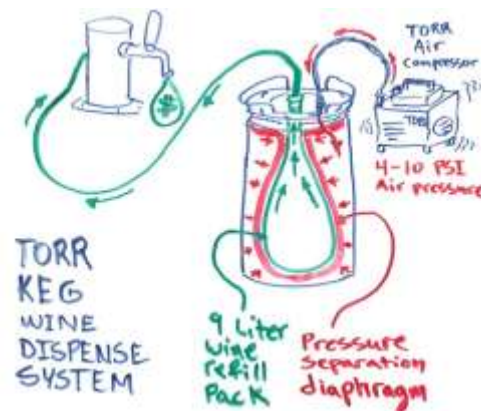 TORR
Air
compressor
4-10 PSI
Air pressure
TORR
KEG
WINE
DISPENSE
SYSTEM
9 Liter
wine
refill
pack
Pressure
separation
diaphragm